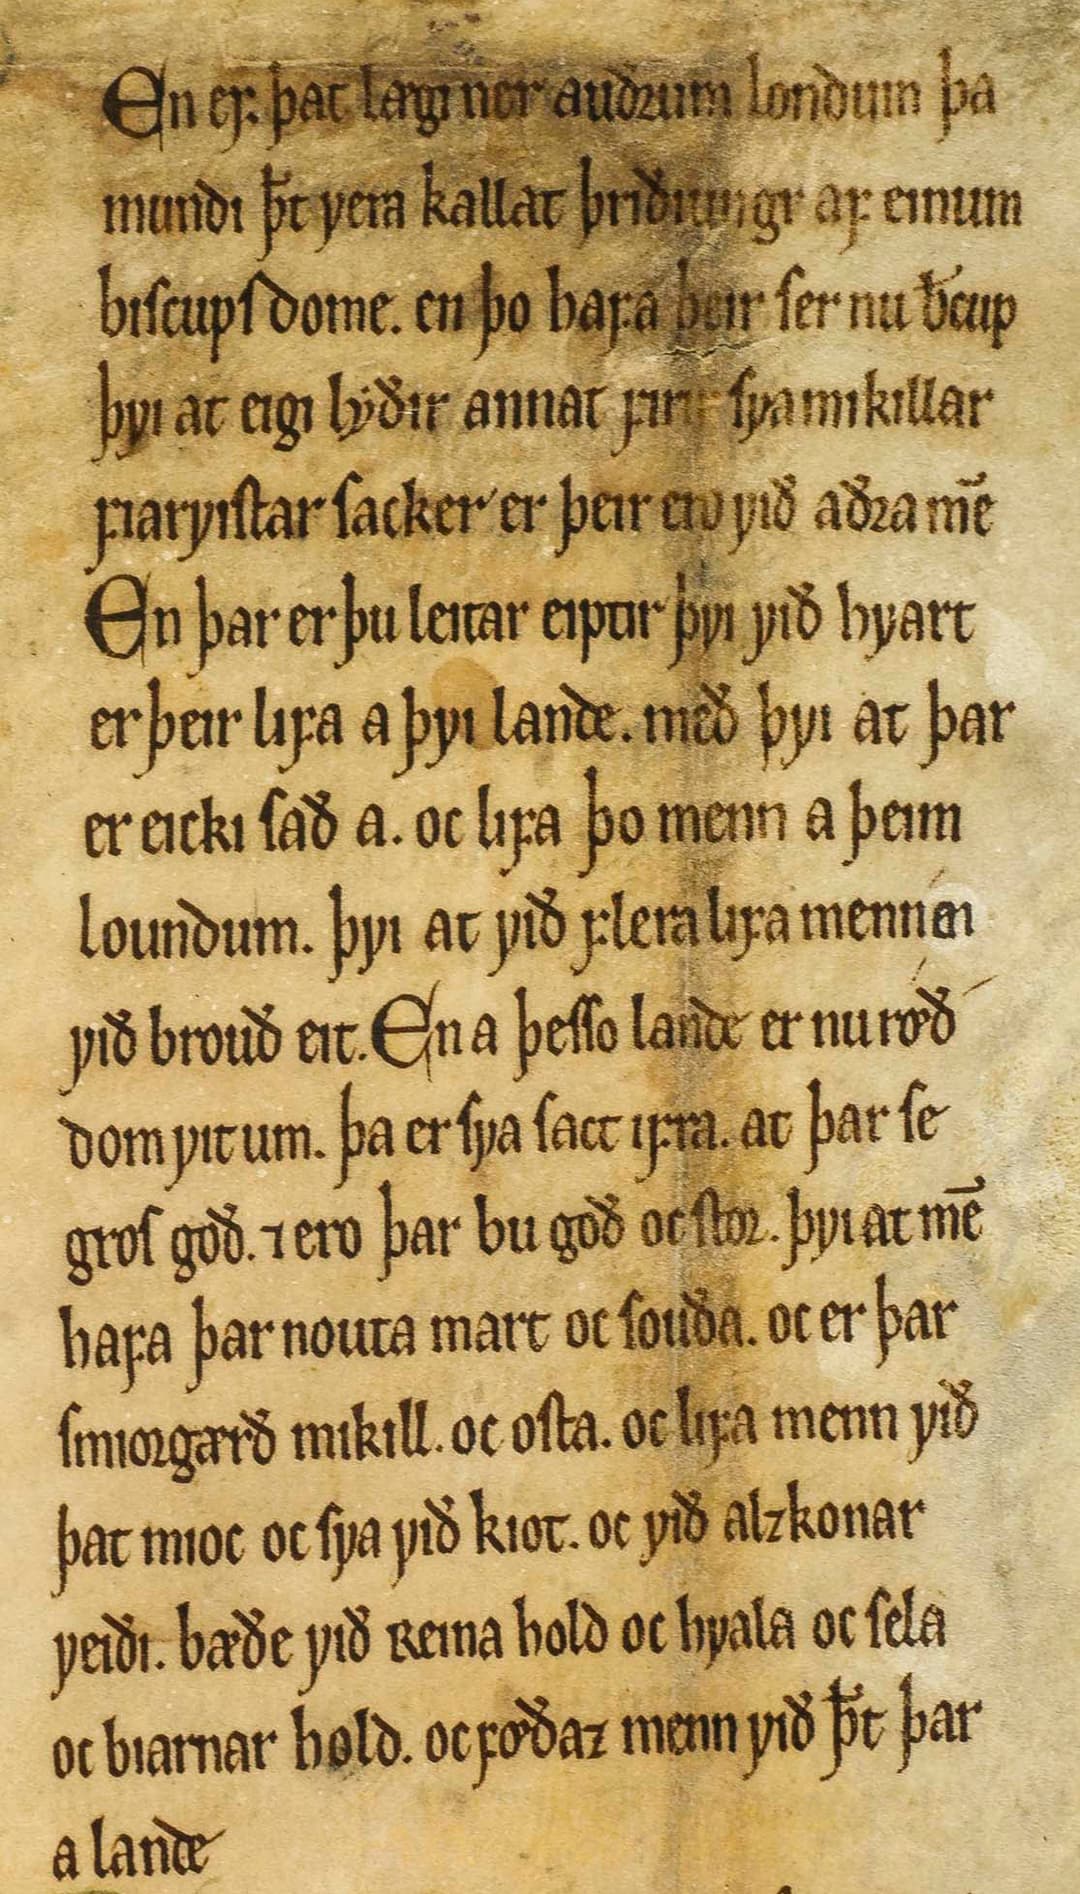 En ef. þat lægi ner auðrum londum þa
mundi þ̄t vera kallat þriðiungr af einum
biscups dome. en þo hafa þeir ser nu b̄cup
þvi at eigi lyðir annat firir sva mikillar
fiarvistar sacker er þeir ero við aðra me̅
En þar er þu leitar eiptir þvi við hvart
er þeir lifa a þvi lande. með þvi at þar
er eicki sað a. oc lifa þo menn a þeim
loundum. þvi at við flera lifa menn en
við brouð eit. En a þesso lande er nu rœð
dom vit um. þa er sva sact ifra. at þar se
gros goð. ⁊ ero þar bu goð oc stor. þvi at me̅
hafa þar nouta mart oc souða. oc er þar
smiorgærð mikill. oc osta. oc lifa menn við
þat mioc oc sva við kiot. oc við alzkonar
veiði. bæðe við Reina hold oc hvala oc sela
oc biarnar hold. oc fœðaz menn við þ̄t þar
a lande